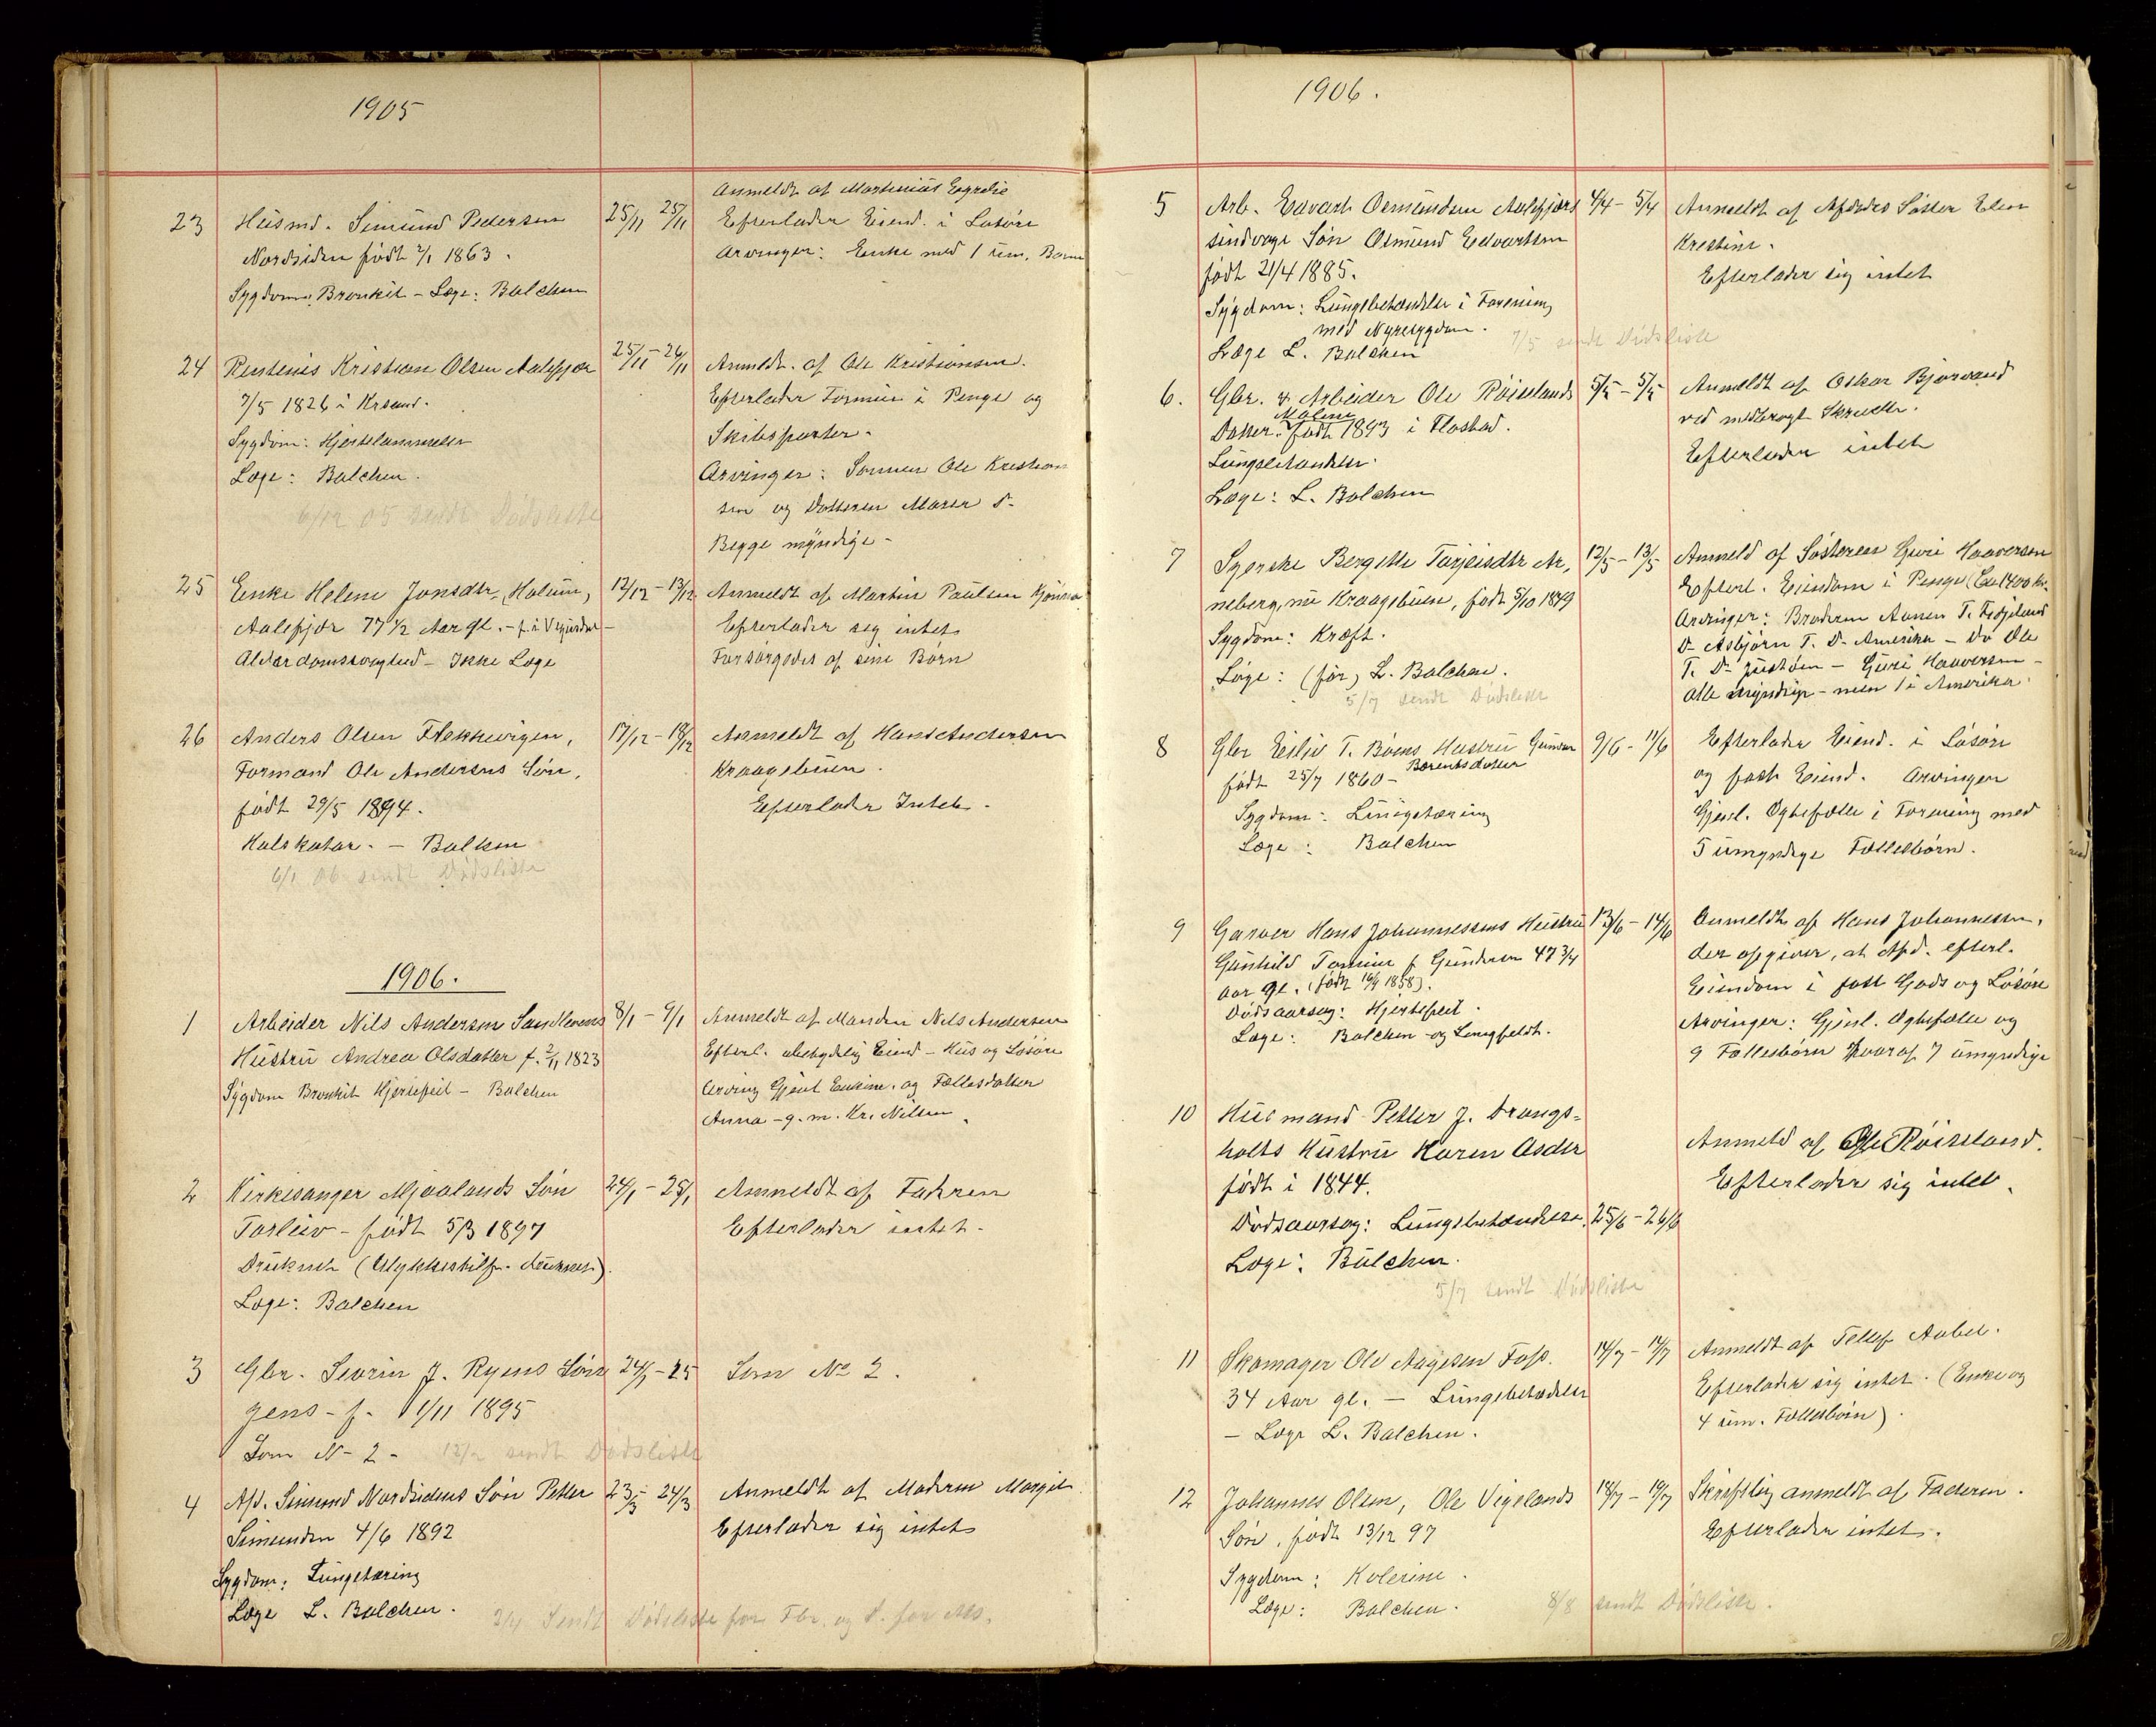 1905
23 Husmd. Simund Pedersen
Nordsiden født 2/1 1863.
Sygdom: Bronkit - Læge: Balchen
25/11 25/11
Anmeldt af Martinius
Efterlader Eiend. i Løsøre
Arvinger: Enke med 1 um. Barn
24 Rentenis Kristian Olsen Aalefjær
7/5 1826 i Krsand.
Sygdom: Hjertelammelse
Læge: Balchen.
6/12 05 sendt Dødsliste
25/11 - 26/11
Anmeldt af Ole Kristiansen.
Efterlader Formue i Penge og
Skibsparter.
Arvinger: Sønnen Ole Kristian
sen og Datteren Maren D-
Begge myndige -
25 Enke Helene Jonsdtr. (Holum)
Aalefjær 77 1/2 Aar gl. -
Alderdomssvaghed - Ikke Læge
12/12 - 13/12
Anmeldt af Martin Paulsen
Efterlader sig intet
Forsørgedes af sine Børn
26 Anders Olsen Flekkevigen,
Formand Ole Andersens Søn,
født 29/5 1894.
Halskatar. - Balken
6/1 06 sendt Dødsliste
17/12 - 18/12
Anmeldt af Hans Andersen
Kraagebuen.
Efterlader Intet -
1906.
1 Arbeider Nils Andersen Sandlevens
Hustru Andrea Olsdatter f. 2/11 1823
Sygdom Bronkit Hjertefeil - Balchen
8/1 - 9/1
Anmeldt af Manden Nils Andersen
Efterl. ubetydelig Eiend - Hus og Løsøre
Arving Gjenl. og Fællesdatter
Anna - g. m. Kr. Nilsen.
2 Kirkesanger Mjaalands Søn
Torleiv - født 5/3 1897
Druknet (Ulykkestilf. druknet).
Læge: Balchen
24/1 - 25/1
Anmeldt af Faderen
Efterlader intet -
3 Gbr. Severin J. Ryens Søn
Jens - f. 1/11 1895
Som N- 2 - 12/2 sendt Dødsliste
24/1 - 25
Som No 2.
4 Afd. Simund Nordsidens Søn Petter
Simunden 4/6 1892
Sygdom: Lungetæring
Læge L. Balchen.
23/3 - 24/3
Anmeldt af Moderen Margit
Efterlader sig intet
3/4 Sendt Dødsliste for Fbr. og d. for Ms.
1906.
5 Arb. Edvart Osmundsen Aalefjærs
søn Osmund Edvartsen
født 21/4 1885.
Sygdom: Lungebetændelse i Forening
med Nyresygdom.
Læge L. Balchen
7/5 sendt Dødsliste
4/4 - 5/4
Anmeldt af Afdødes Søster Elen
Kristine.
Efterlader sig intet
6. Gbr. & Arbeider Ole Røiselands
Malene
Datter. født 1893 i Flostad.
Lungebetændelse.
Læge: L. Balchen
5/5 - 5/5
Anmeldt af Oskar Bjorvand
ved medbragt Skrivelse.
Efterlader intet
7 Syerske Bergitte Tarjeisdtr Ar,
neberg, nu Kraagebuen, født 5/10 1849
Sygdom: Kræft.
Læge: (før) L. Balchen.
5/7 sendt Dødsliste
12/5 - 13/5
Anmeld af Søsteren Guri Haaversen
Efterl. Eiendom i Penge (Ca 1400 kr.
Arvinger: Broderen Aanen T.
D- Asbjørn T. D- Amerika - Do Ole
T. D- - Guri Haaversen -
alle myndige - men 1 i Amerika.
8 Gbr Eiliv T. Bøens Hustru Gunvor
Berentsdatter
født 25/7 1860 -
Sygdom: Lungetæring
Læge: Balchen
9/6 - 11/6
Efterlader Eiend. i Løsøre
og fast Eiend. Arvinger
Gjenl. Ægtefælle i Forening med
5 umyndige Fællesbørn.
9 Garver Hans Johannessens Hustru
Gunhild Tomine f Gundersen 47 3/4
Aar gl. (født 16/9 1858).
Dødsaarsag: Hjertefeil.
Læge: Balchen og Lengfeldt.
13/6 - 14/6
Anmeldt af Hans Johannessen,
der opgiver, at Afd. efterl.
Eiendom i fast Gods og Løsøre
Arvinger: Gjenl. Ægtefælle og
9 Fællesbørn hvoraf 7 umyndige
10 Husmand Petter J. Drangs=
holts Hustru Karen Asdtr
født i 1844.
Dødsaarsag: Lungebetændelse.
Læge: Balchen.
5/7 sendt Dødsliste
25/6 - 26/6
Anmeld af Ole Røiseland.
Efterlader sig intet.
11 Skomager Ole Aagesen Foss.
34 Aar gl. - Lungebetædelse
- Læge L. Balchen.
14/7 - 17/7
Anmeldt af Tellef Aabel.
Efterlader sig intet. (Enke og
4 um. Fællesbørn).
12 Johannes Olsen, Ole Vigelands
Søn, født 13/12 97
Sygdom: Kolerine.
Læge: Balchen.
18/7 - 19/7
Skriftlig anmeldt af Faderen.
Efterlader intet.
8/8 sendt Dødsliste.